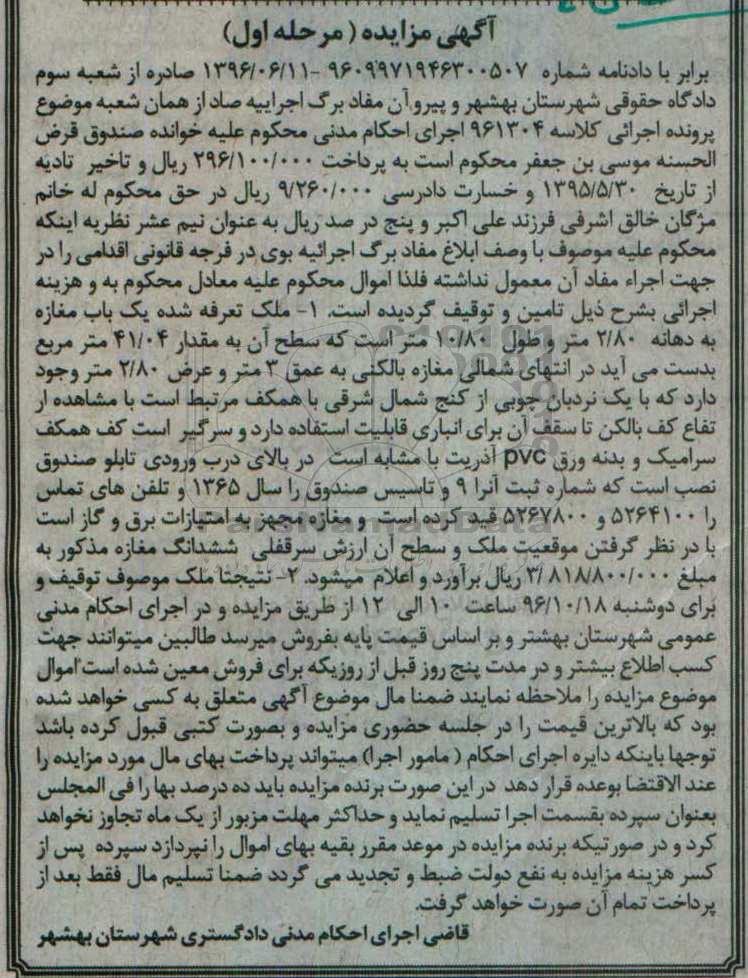 آگهی مزایده (مرحله اول)
برابر با دادنامه شماره ۹۶۰۹۹۷۱۹۴۶۳۰۰۵۰۷ -۱۳۹۶/۰۶/۱۱ صادره از شعبه سوم
دادگاه حقوقی شهرستان بهشهر و پیرو آن مفاد برگ اجراییه صاد از همان شعبه موضوع
پرونده اجرائی کلاسه ۹۶۱۳۰۴ اجرای احکام مدنی محکوم علیه خوانده صندوق قرض
الحسنه موسی بن جعفر محکوم است به پرداخت ۲۹۶/۱۰۰/۰۰۰ ریال و تاخیر تادیه
از تاریخ ۱۳۹۵/۵/۳۰ و خسارت دادرسی ۹/۲۶۰/۰۰۰ ریال در حق محکوم له خانم
مژگان خالق اشرفی فرزند علی اکبر و پنج در صد ریال به عنوان نیم عشر نظریه اینکه
محکوم علیه موصوف با وصف ابلاغ مفاد برگ اجرائیه بوی در فرجه قانونی اقدامی را در
جهت اجراء مفاد آن معمول نداشته فلذا اموال محکوم علیه معادل محکوم به و هزینه
اجرائی بشرح ذیل تامین و توقیف گردیده است. ۱- ملک تعرفه شده یک باب مغازه
به دهانه ۲/۸۰ متر و طول ۱۰/۸۰ متر است که سطح آن به مقدار ۴۱/۰۴ متر مربع
بدست می آید در انتهای شمالی مغازه بالکنی به عمق ۳ متر و عرض ۲/۸۰ متر وجود
دارد که با یک نردبان چوبی از کنج شمال شرقی با همکف مرتبط است با مشاهده ار
تفاع کف بالکن تا سقف آن برای انباری قابلیت استفاده دارد و سرگیر است کف همکف
سرامیک و بدنه ورق pvc آذریت با مشابه است در بالای درب ورودی تابلو صندوق
نصب است که شماره ثبت آنرا ۹ و تاسیس صندوق را سال ۱۳۶۵ و تلفن های تماس
را ۵۲۶۴۱۰۰ و ۵۲۶۷۸۰۰ قید کرده است و مغازه مجهز به امتیازات برق و گاز است
با در نظر گرفتن موقعیت ملک و سطح آن ارزش سرقفلی ششدانگ مغازه مذکور به
مبلغ ۳/۸۱۸/۸۰۰/۰۰۰ ریال برآورد و اعلام میشود. ۲- نتیجتا ملک موصوف توقیف و
برای دوشنبه ۹۶/۱۰/۱۸ ساعت ۱۰ الی ۱۲ از طریق مزایده و در اجرای احکام مدنی
عمومی شهرستان بهشتر و بر اساس قیمت پایه بفروش میرسد طالبین میتوانند جهت
کسب اطلاع بیشتر و در مدت پنج روز قبل از روزیکه برای فروش معین شده است اموال
موضوع مزایده را ملاحظه نمایند ضمنا مال موضوع آگهی متعلق به کسی خواهد شده
بود که بالاترین قیمت را در جلسه حضوری مزایده و بصورت کتبی قبول کرده باشد
توجها باینکه دایره اجرای احکام (مامور اجرا) میتواند پرداخت بهای مال مورد مزایده را
عند الاقتضا بوعده قرار دهد در این صورت برنده مزایده باید ده درصد بها را فی المجلس
بعنوان سپرده بقسمت اجرا تسلیم نماید و حداکثر مهلت مزبور از یک ماه تجاوز نخواهد
کرد و در صورتیکه برنده مزایده در موعد مقرر بقیه بهای اموال را نپردازد سپرده پس از
کسر هزینه مزایده به نفع دولت ضبط و تجدید می گردد ضمنا تسلیم مال فقط بعد از
پرداخت تمام آن صورت خواهد گرفت.
قاضی اجرای احکام مدنی دادگستری شهرستان بهشهر